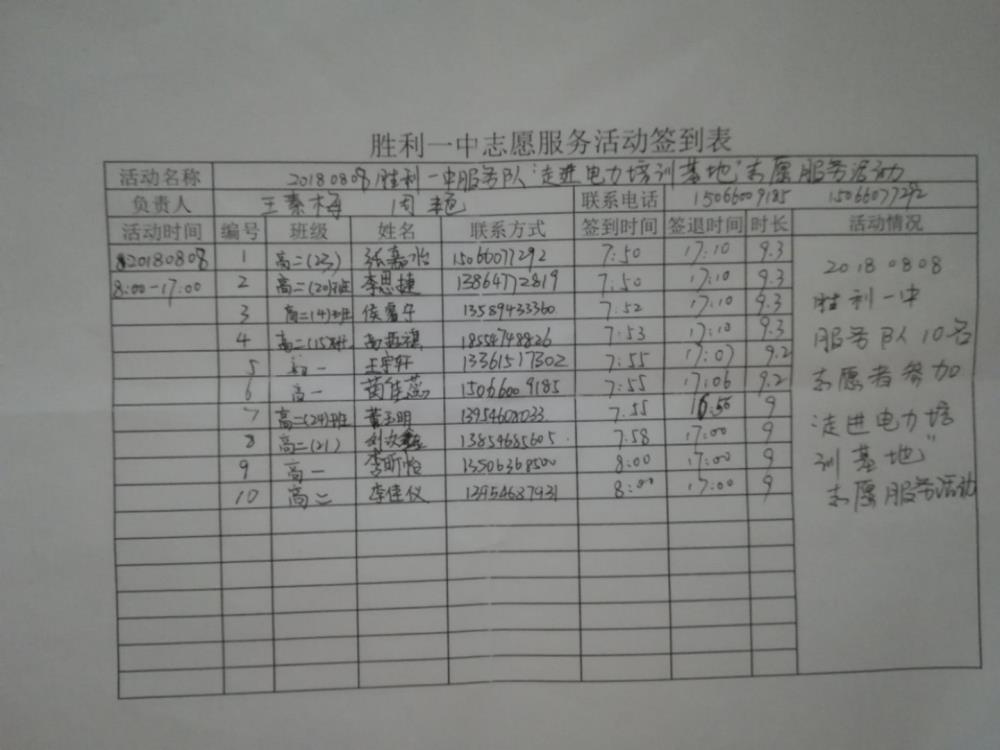 胜利一中志愿服务活动签到表
活动名称 20180808胜利一中服务队“走进电力培训基地”志愿服务活动
负责人 王素梅 周艳 联系电话 15066009185 15066077292
活动时间 编号 班级 姓名 联系方式 签到时间 签退时间 时长 活动情况
20180808 1 高二(23) 张嘉怡 15066077292 7:50 17:10 9.3
8:00-17:00 2 高二(20)班 李思捷 13864772819 7:50 17:10 9.3
3 高二(4)班 侯雪宁 13589433360 7:52 17:10 9.3
4 高二(15)班 18554748826 7:53 17:10 9.3
5 初一 王宇轩 13361517302 7:55 17:07 9.2
6 高一 黄佳蕊 15066009185 7:55 17:06 9.2
7 高二(24)班 董玉明 13954608033 7:55 16:50 9
8 高二(21) 13854685605 7:58 17:00 9
9 高一 李昕怡 13506368500 8:00 17:00 9
10 高二 李佳仪 13954687931 8:00 17:00 9
20180808
胜利一中
服务队10名
志愿者参加
“走进电力培
训基地”
志愿服务活动